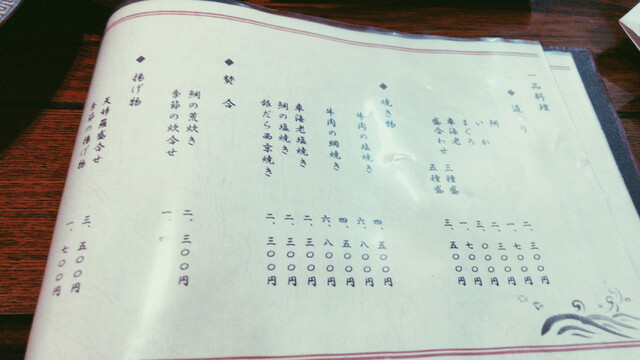 一品料理
◆造り
鯛 二、三〇〇円
いか 一、七〇〇円
まぐろ 二、三〇〇円
車海老
盛合わせ 三種盛
五種盛 三、五〇〇円
◆焼き物
牛肉の塩焼き 四、五〇〇円
六、八〇〇円
牛肉の網焼き 四、五〇〇円
六、八〇〇円
車海老塩焼き 二、三〇〇円
鯛の塩焼き 二、三〇〇円
銀だら西京焼き 二、三〇〇円
◆焚合
鯛の荒炊き 二、三〇〇円
季節の炊合せ 一、
◆揚げ物
天婦羅盛合せ 三、五〇〇円
季節の揚げ物 一、七〇〇円